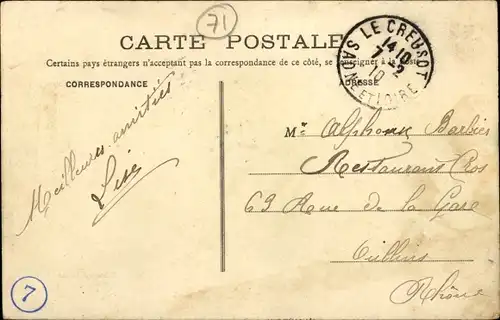 71
CARTE POSTALE
Certains pays étrangers n'acceptant pas la correspondance de ce côté, se renseigner à la Poste
CORRESPONDANCE
ADRESSE
LE CREUSOT
14 10
7 - 2
10
SAONE-ET-LOIRE
Meilleures amitiés
M. Alphonse Barbier
Restaurant Cros
63 Rue de la Gare
Oullins
Rhône
7